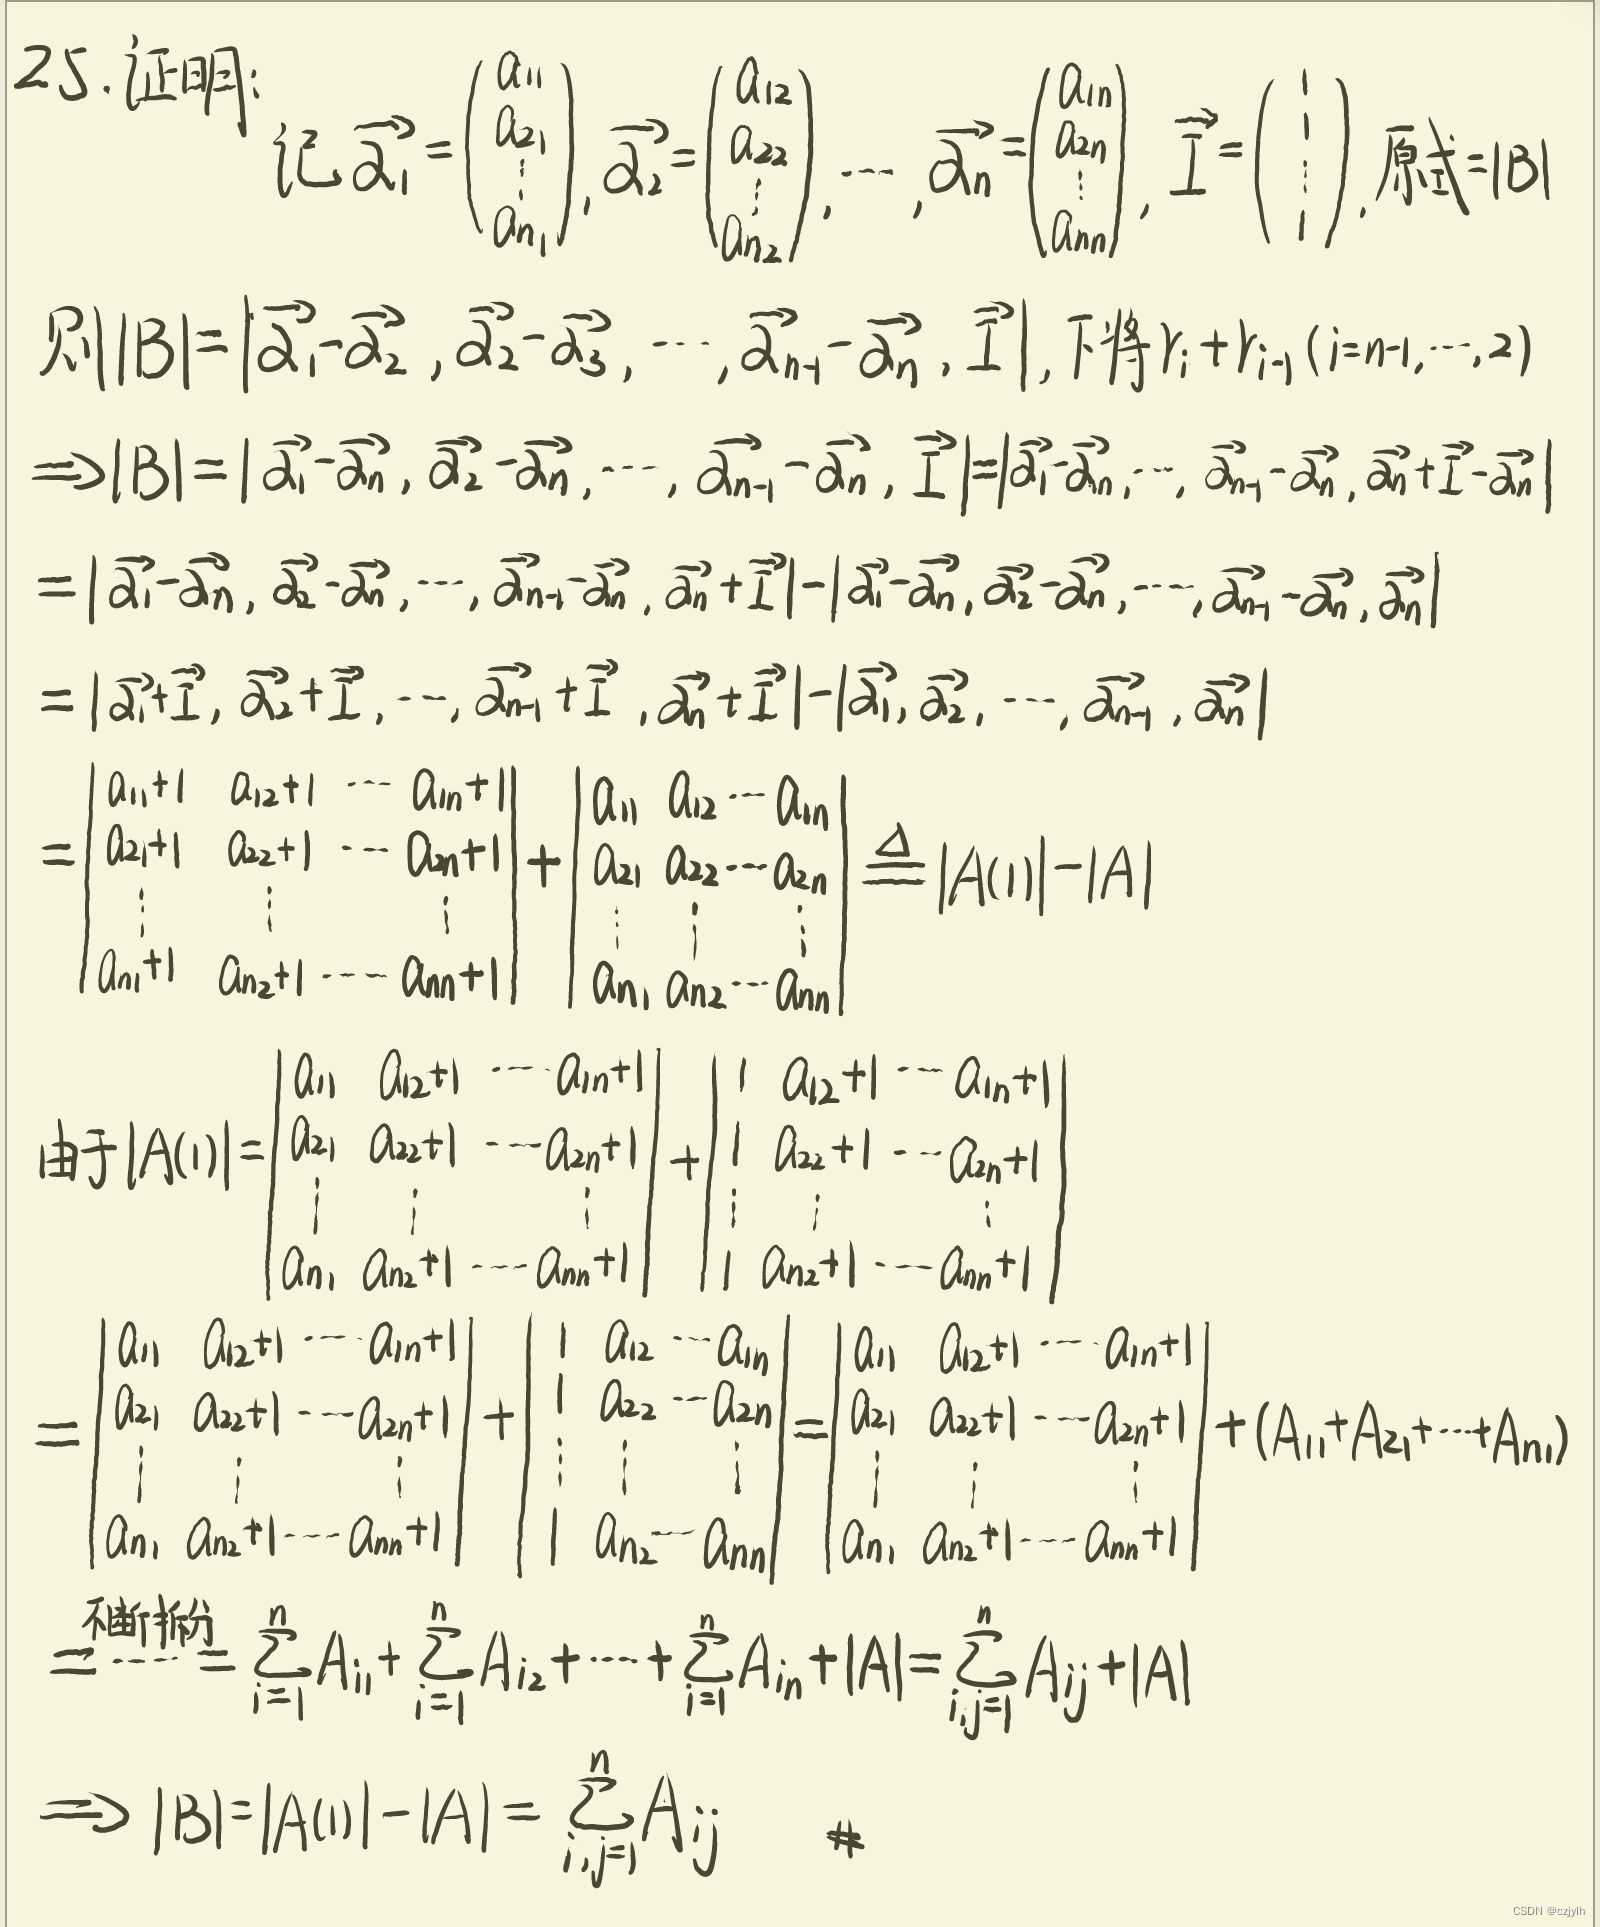 25. 证明:
记 $\vec{\alpha}_1=\begin{pmatrix}a_{11}\\a_{21}\\\vdots\\a_{n1}\end{pmatrix}, \vec{\alpha}_2=\begin{pmatrix}a_{12}\\a_{22}\\\vdots\\a_{n2}\end{pmatrix}, \cdots, \vec{\alpha}_n=\begin{pmatrix}a_{1n}\\a_{2n}\\\vdots\\a_{nn}\end{pmatrix}, \vec{I}=\begin{pmatrix}1\\1\\\vdots\\1\end{pmatrix}$, 原式 $=|B|$
则 $|B|=|\vec{\alpha}_1-\vec{\alpha}_2, \vec{\alpha}_2-\vec{\alpha}_3, \cdots, \vec{\alpha}_{n-1}-\vec{\alpha}_n, \vec{I}|$, 下将 $r_i+r_{i-1}(i=n-1,\cdots,2)$
$\Rightarrow|B|=|\vec{\alpha}_1-\vec{\alpha}_n, \vec{\alpha}_2-\vec{\alpha}_n, \cdots, \vec{\alpha}_{n-1}-\vec{\alpha}_n, \vec{I}|=|\vec{\alpha}_1-\vec{\alpha}_n, \cdots, \vec{\alpha}_{n-1}-\vec{\alpha}_n, \vec{\alpha}_n+\vec{I}-\vec{\alpha}_n|$
$=|\vec{\alpha}_1-\vec{\alpha}_n, \vec{\alpha}_2-\vec{\alpha}_n, \cdots, \vec{\alpha}_{n-1}-\vec{\alpha}_n, \vec{\alpha}_n+\vec{I}|-|\vec{\alpha}_1-\vec{\alpha}_n, \vec{\alpha}_2-\vec{\alpha}_n, \cdots, \vec{\alpha}_{n-1}-\vec{\alpha}_n, \vec{\alpha}_n|$
$=|\vec{\alpha}_1+\vec{I}, \vec{\alpha}_2+\vec{I}, \cdots, \vec{\alpha}_{n-1}+\vec{I}, \vec{\alpha}_n+\vec{I}|-|\vec{\alpha}_1, \vec{\alpha}_2, \cdots, \vec{\alpha}_{n-1}, \vec{\alpha}_n|$
$=\begin{vmatrix}a_{11}+1&a_{12}+1&\cdots&a_{1n}+1\\a_{21}+1&a_{22}+1&\cdots&a_{2n}+1\\\vdots&\vdots&&\vdots\\a_{n1}+1&a_{n2}+1&\cdots&a_{nn}+1\end{vmatrix}+\begin{vmatrix}a_{11}&a_{12}&\cdots&a_{1n}\\a_{21}&a_{22}&\cdots&a_{2n}\\\vdots&\vdots&&\vdots\\a_{n1}&a_{n2}&\cdots&a_{nn}\end{vmatrix}\overset{\Delta}{=}|A(1)|-|A|$
由于 $|A(1)|=\begin{vmatrix}a_{11}&a_{12}+1&\cdots&a_{1n}+1\\a_{21}&a_{22}+1&\cdots&a_{2n}+1\\\vdots&\vdots&&\vdots\\a_{n1}&a_{n2}+1&\cdots&a_{nn}+1\end{vmatrix}+\begin{vmatrix}1&a_{12}+1&\cdots&a_{1n}+1\\1&a_{22}+1&\cdots&a_{2n}+1\\\vdots&\vdots&&\vdots\\1&a_{n2}+1&\cdots&a_{nn}+1\end{vmatrix}$
$=\begin{vmatrix}a_{11}&a_{12}+1&\cdots&a_{1n}+1\\a_{21}&a_{22}+1&\cdots&a_{2n}+1\\\vdots&\vdots&&\vdots\\a_{n1}&a_{n2}+1&\cdots&a_{nn}+1\end{vmatrix}+\begin{vmatrix}1&a_{12}&\cdots&a_{1n}\\1&a_{22}&\cdots&a_{2n}\\\vdots&\vdots&&\vdots\\1&a_{n2}&\cdots&a_{nn}\end{vmatrix}=\begin{vmatrix}a_{11}&a_{12}+1&\cdots&a_{1n}+1\\a_{21}&a_{22}+1&\cdots&a_{2n}+1\\\vdots&\vdots&&\vdots\\a_{n1}&a_{n2}+1&\cdots&a_{nn}+1\end{vmatrix}+(A_{11}+A_{21}+\cdots+A_{n1})$
不断拆分
$=\cdots=\sum_{i=1}^{n}A_{i1}+\sum_{i=1}^{n}A_{i2}+\cdots+\sum_{i=1}^{n}A_{in}+|A|=\sum_{i,j=1}^{n}A_{ij}+|A|$
$\Rightarrow|B|=|A(1)|-|A|=\sum_{i,j=1}^{n}A_{ij}$ #
CSDN @czjylh